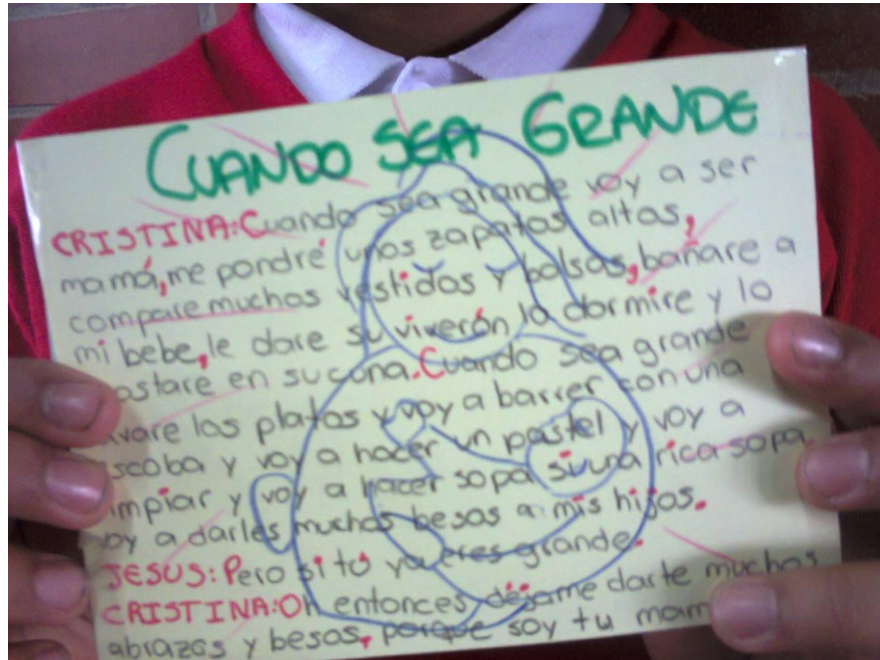 CUANDO SEA GRANDE
CRISTINA:Cuando sea grande voy a ser
mamá,me pondré unos zapatos altos,
compare muchos vestidos y bolsos,bañare a
mi bebe,le dare su viverón lo dormire y lo
ostare en su cuna.Cuando sea grande
avare los platos y voy a barrer con una
scoba y voy a hacer un pastel y voy a
impiar y voy a hacer sopa si una rica sopa
oy a darles muchos besos a mis hijos.
JESUS:Pero si tú ya eres grande.
CRISTINA:Oh entonces déjame darte muchos
abrazos y besos, porque soy tu mam